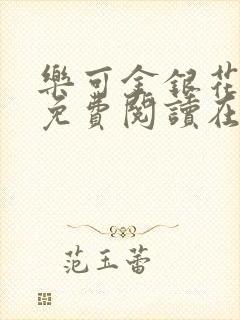 樂可金銀花
免費閱讀在
范玉蕾